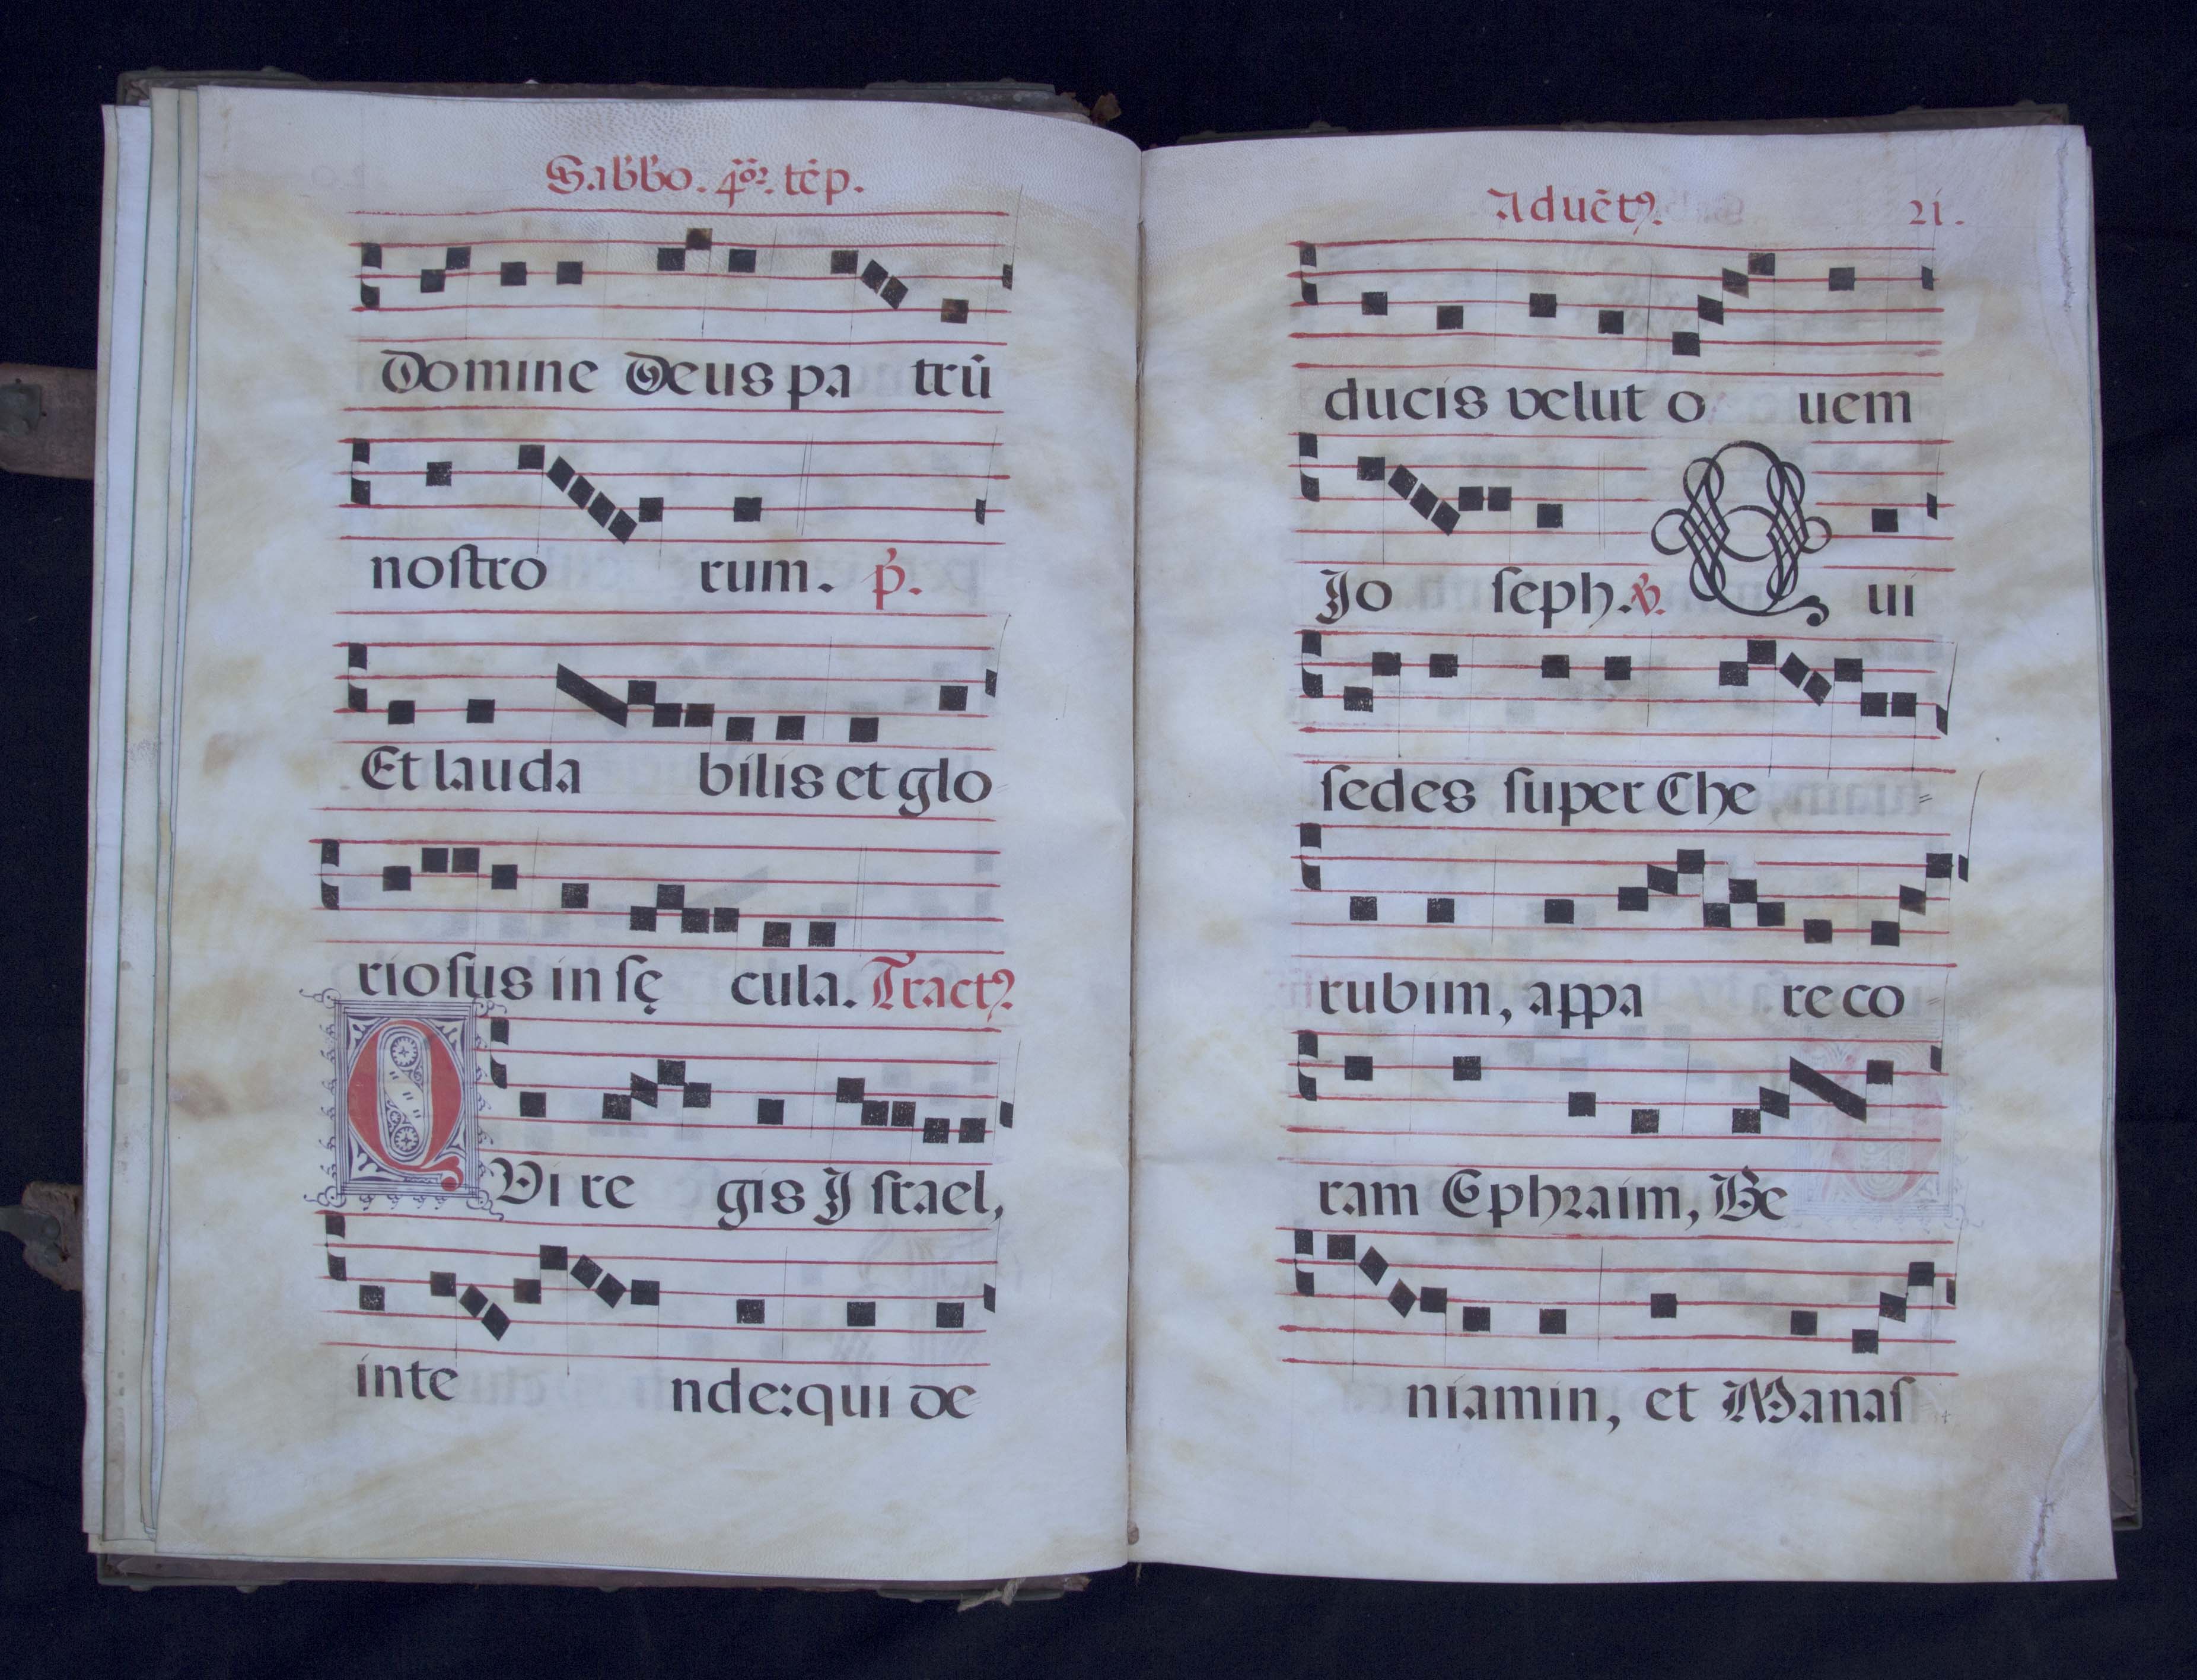 Sabbo. 4or. tēp.
Domine Deus pa trū
nostro rum. p̄.
Et lauda bilis et glo=
riosus in sę cula. Tractꝰ
QVi re gis Israel,
inte nde: qui de=
Aduētꝰ. 21.
ducis velut o uem
Jo seph. ℣. Q ui
sedes super Che =
rubim, appa re co=
ram Ephraim, Be
niamin, et Manas